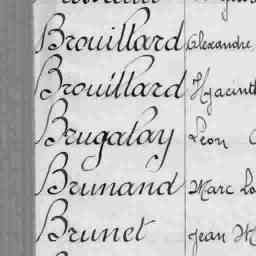 Brouillard Alexandre
Brouillard Hyacinth
Brugalay Léon
Brunand Marc
Brunet Jean M